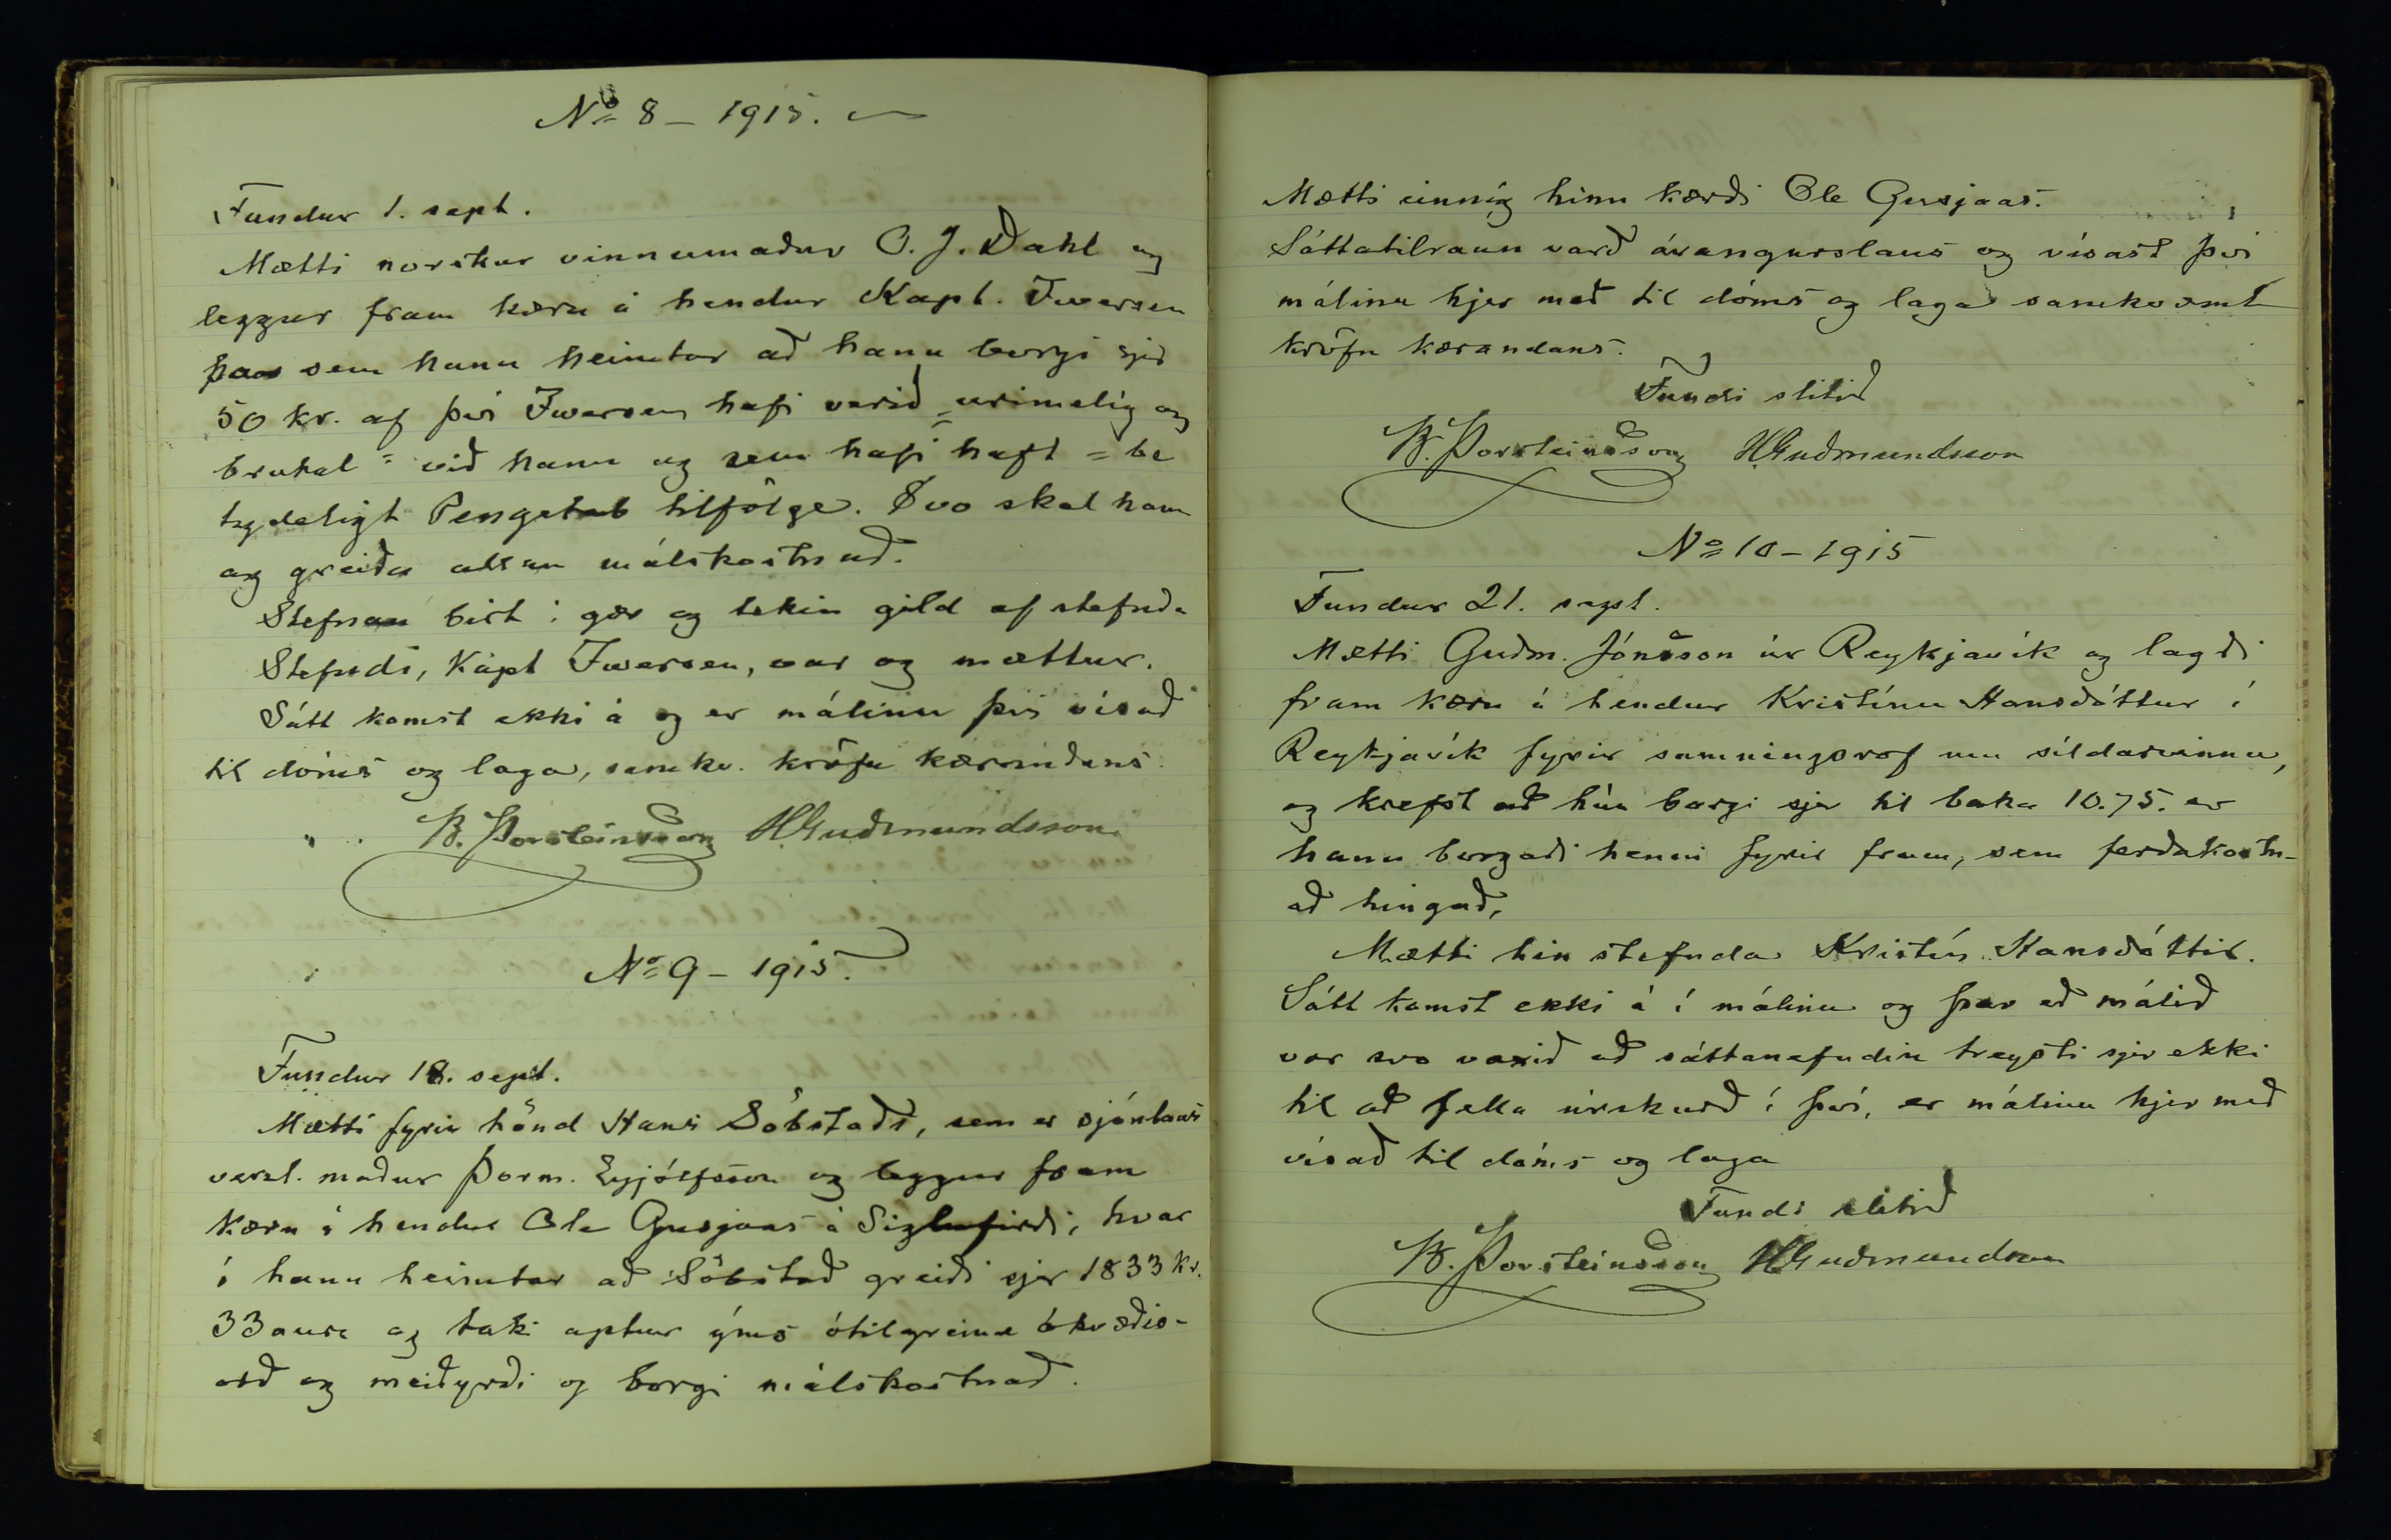 No 8 – 1915.
Fundur 1. sept.
Mætti norskur vinnumaður O. J. Dahl og
leggur fram kæru á hendur Kapt. Iversen
þar sem hann heimtar að hann borgi sjer
50 kr. af því Iwersen hafi verið "urimelig og
brutal" við hann og sem hafi haft "be
tydeligt Pengetab tilfölge. Svo skal hann
og greiða allan málskostnað.
Stefnan birt í gær og tekin gild af stefnda
Stefndi, Kapt Iwersen, var og mættur.
Sátt komst ekki á og er málinu því vísað
til dóms og laga, samkv. kröfu kærandans.
B. Þorsteinsson HGuðmundsson
No 9 – 1915.
Fundur 18. sept.
Mætti fyrir hönd Hans Söbstaðs, sem er sjónlaus
verzl. maður Þorm. Eyjólfsson og leggur fram
kæru á hendur Ole Gusjaas á Siglufirði, hvar
í hann heimtar að Söbstað greiði sjer 1833 kr.
33 aura og taki aptur ýms ótilgreind ókvæðis-
orð og meiðyrði og borgi málskostnað.
Mætti einnig hinn kærði Ole Gusjaas.
Sáttatilraun varð árangurslaus og vísast því
málinu hjer með til dóms og laga samkvæmt
kröfu kærandans.
Fundi slitið
B. Þorsteinsson HGuðmundsson
No 10 – 1915
Fundur 21. sept.
Mætti Guðm. Jónsson úr Reykjavík og lagði
fram kæru á hendur Kristínu Hansdóttur í
Reykjavík fyrir samningsrof um síldarvinnu,
og krefst að hún borgi sjer til baka 10.75. er
hann borgaði henni fyrir fram, sem ferðakostn-
að hingað,
Mætti hin stefnda Kristín Hansdóttir.
Sátt komst ekki á í málinu og þar eð málið
var svo vaxið að sáttanefndin treysti sjer ekki
til að fella úrskurð í því, er málinu hjer með
vísað til dóms og laga
Fundi slitið
B. Þorsteinsson HGuðmundsson